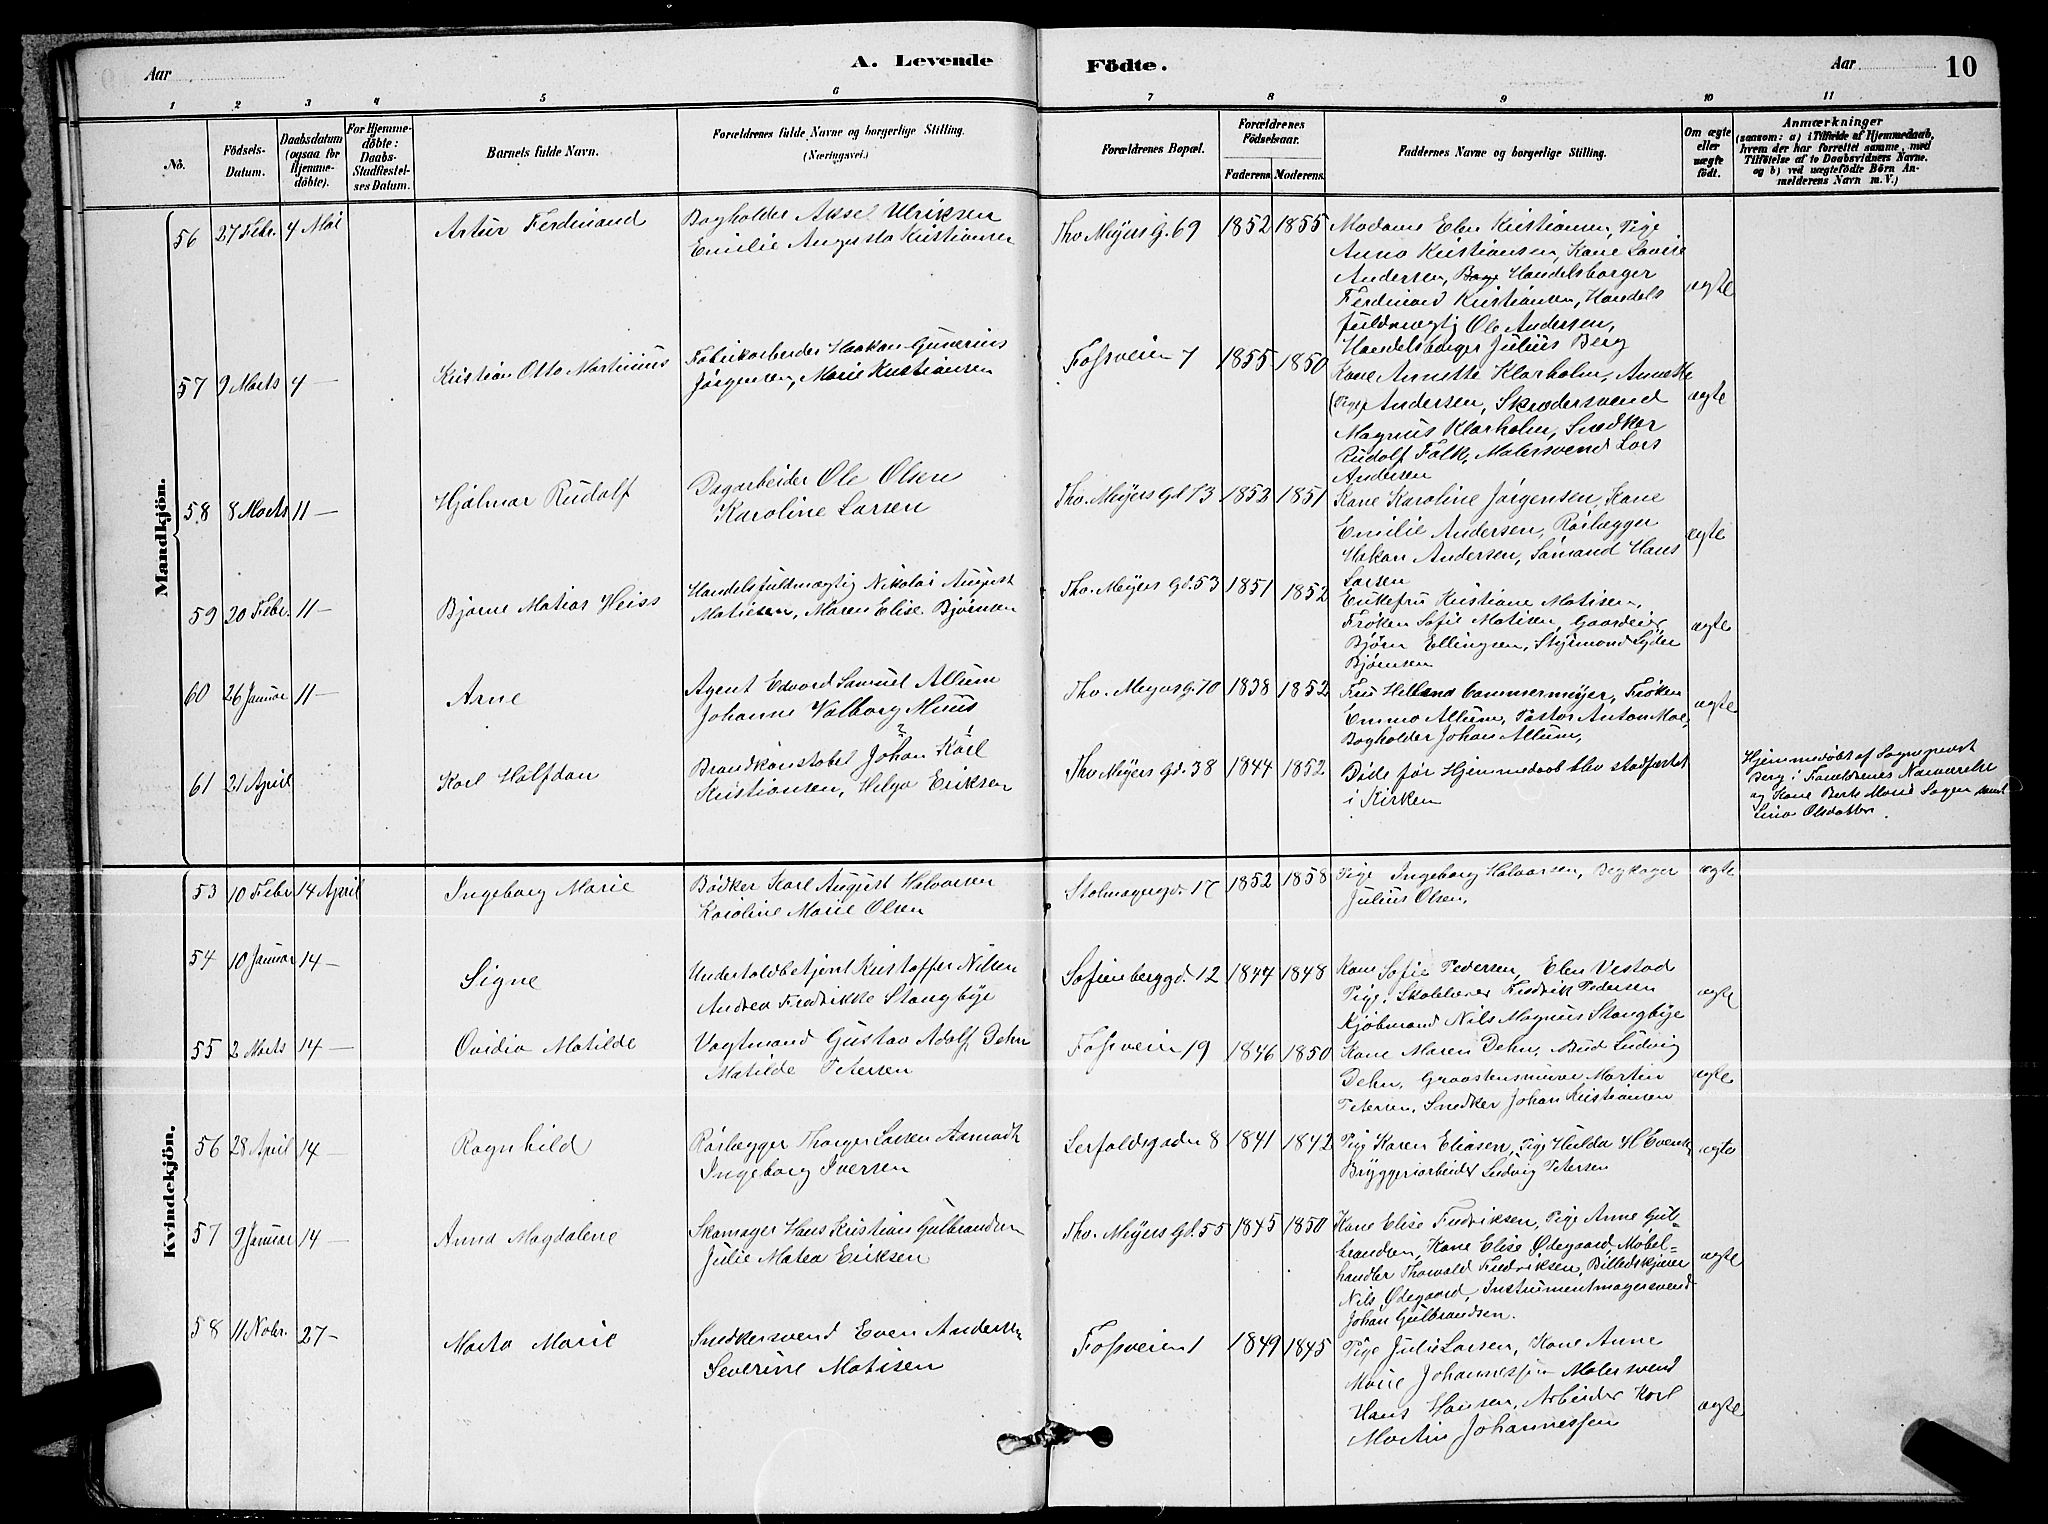 Aar
A. Levende
Födte.
Aar
10
1 2 3 4 5 6 7 8 9 10 11
Nö.
Födsels-Datum.
Daabsdatum (ogsaa for Hjemmedöbte).
For Hjemmedöbte: Daabs-Stadfæstelses Datum.
Barnets fulde Navn.
Forældrenes fulde Navne og borgerlige Stilling. (Næringsvei.)
Forældrenes Bopæl.
Forældrenes Födselsaar.
Faderens. Moderens.
Faddernes Navne og borgerlige Stilling.
Om ægte eller uægte födt.
Anmærkninger (saasom: a) i Tilfælde af Hjemmedaab, hvem der har forrettet samme, med Tilföielse af to Daabsvidners Navne, og b) ved uægtefödte Börn Anmelderens Navn m. V.)
Mandkjön.
56 27 Febr. 4 Mai Artur Ferdinand
Bogholder Aksel Ulriksen
Emilie Augusta Kristiansen
Tho. Meyers G. 69 1852 1855
Madame Elen Kristiansen, Pige
Anna Kristiansen, Kone Lovise
Andersen, Handelsborger
Ferdinand Kristiansen, Handels
fuldmægtig Ole Andersen,
Handelsborger Julius Berg
ægte
57 9 Marts 4 — Kristian Otto Martinius
Fabrikarbeider Haakon Gunerius
Jørgensen, Marie Kristiansen
Fossveien 7 1855 1850
Kone Annette Klarholm, Annette
(Pige) Andersen, Skrædersvend
Magnus Klarholm, Snedker
Rudolf Falk, Malersvend Lars
Andersen
ægte
58 8 Marts 11 — Hjalmar Rudolf
Dagarbeider Ole Olsen
Karoline Larsen
Tho. Meyers Gd 73 1852 1851
Kone Karoline Jørgensen, Kone
Emilie Andersen, Rørlægger
Hakon Andersen, Sømand Hans
Larsen
ægte
59 20 Febr. 11 — Bjarne Matias Heiss
Handelsfuldmægtig Nikolai August
Matiesen, Maren Elise Bjørnsen
Tho. Meyers Gd. 53 1851 1852
Enkefru Kristiane Matisen,
Frøken Sofie Matisen, Gaardeier
Bjørn Ellingsen, Styrmand Syder
Bjørnsen
ægte
60 26 Januar 11 — Arne
Agent Edvard Samuel Allum
Johanne Valborg Muus
Tho. Meyers G. 70 1838 1852
Fru Hillina Cammermeyer, Frøken
Emma Allum, Pastor Anton Moe,
Bogholder Johan Allum,
ægte
61 21 April Karl Halfdan
Brandkonstabel Johan Karl
Kristiansen, Helga Eriksen
Tho. Meyers Gd. 38 1844 1852
Døde før Hjemmedaab blev stadfæstet
i Kirken
Hjemmedøbt af Sognepræst
Berg i Forældrenes Nærværelse
og Kone Berte Marie Sagen samt
Lina Olsdatter.
Kvindekjön.
53 10 Febr 14 April Ingeborg Marie
Bødker Karl August Halvorsen
Karoline Marie Olsen
Stolmagergd. 17 1852 1858
Pige Ingeborg Halvorsen,
Julius Olsen,
ægte
54 10 Januar 14 — Signe
Undertoldbetjent Kristoffer Nilsen
Andrea Fredrikke Stangbye
Sofienberggd. 12 1844 1848
Kone Sofie Pedersen, Elen Vestad
Pige, Skolelærer Fredrik Pedersen
Kjøbmand Nils Magnus Stangbye
ægte
55 2 Marts 14 — Ovidia Matilde
Vagtmand Gustav Adolf Dehn
Matilde Petersen
Fossveien 19 1846 1850
Kone Maren Dehn, Bud Ludvig
Dehn, Graastensmurer Martin
Petersen, Snedker Johan Kristiansen
ægte
56 28 April 14 — Ragnhild
Rørlægger Thorger Larsen Aamodt
Ingeborg Iversen
Lerfaldsgaden 8 1841 1842
Pige Karen Eliasen, Pige Hulda H Evensen
Bryggeriarbeider Ludvig Petersen
ægte
57 9 Januar 14 — Anna Magdalene
Skomager Hans Kristian Gulbrandsen
Julie Matea Eriksen
Tho. Meyers Gd. 55 1845 1850
Kone Elise Fredriksen, Pige Anne Gul-
brandsen, Kone Elise Ødegaard, Møbel-
handler Thorvald Fredriksen, Billedskjærer
Nils Ødegaard, Instrumentmagersvend
Johan Gulbrandsen.
ægte
58 11 Nobr. 27 — Marta Marie
Snedkersvend Even Andersen
Severine Matisen
Fossveien 1 1849 1845
Pige Julie Larsen, Kone Anne
Marie Johannessen Malersvend
Hans Hansen, Arbeider Karl
Martin Johannessen
ægte